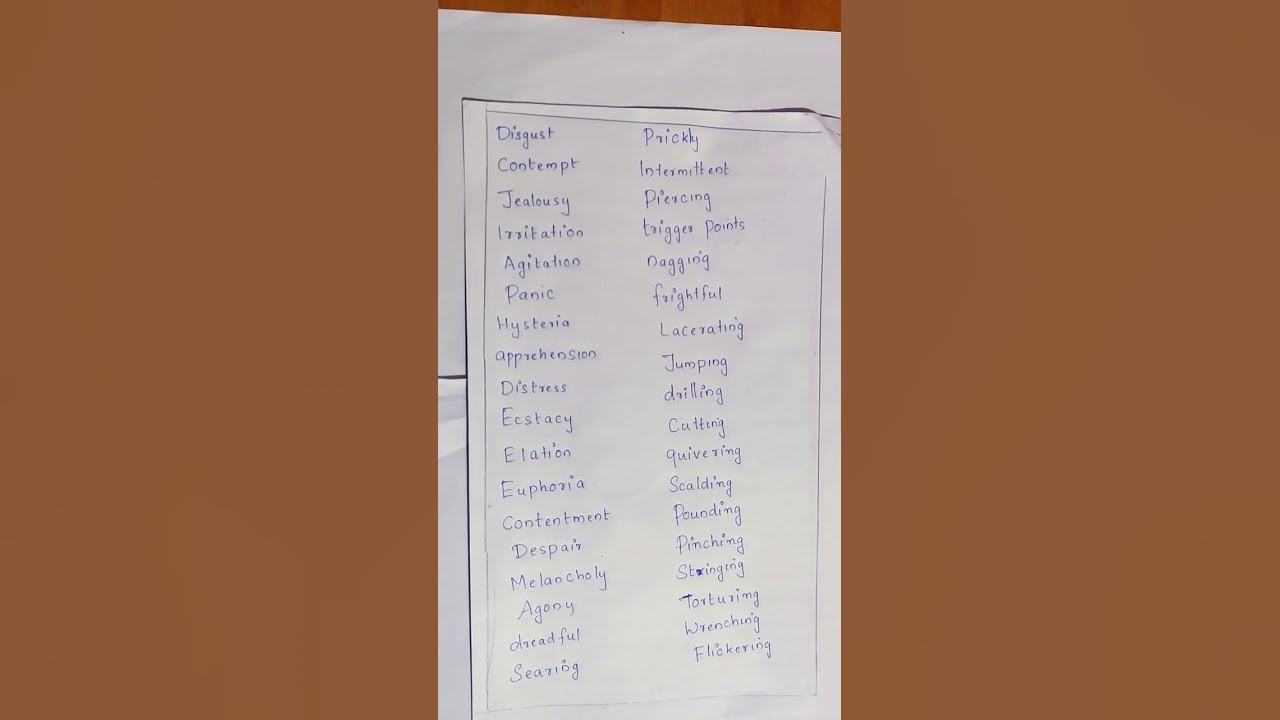 Disgust
Contempt
Jealousy
Irritation
Agitation
Panic
Hysteria
apprehension
Distress
Ecstacy
Elation
Euphoria
Contentment
Despair
Melancholy
Agony
dreadful
Searing
Prickly
Intermittent
Piercing
trigger points
nagging
frightful
Lacerating
Jumping
drilling
Cutting
quivering
Scalding
Pounding
Pinching
Stinging
Torturing
Wrenching
Flickering